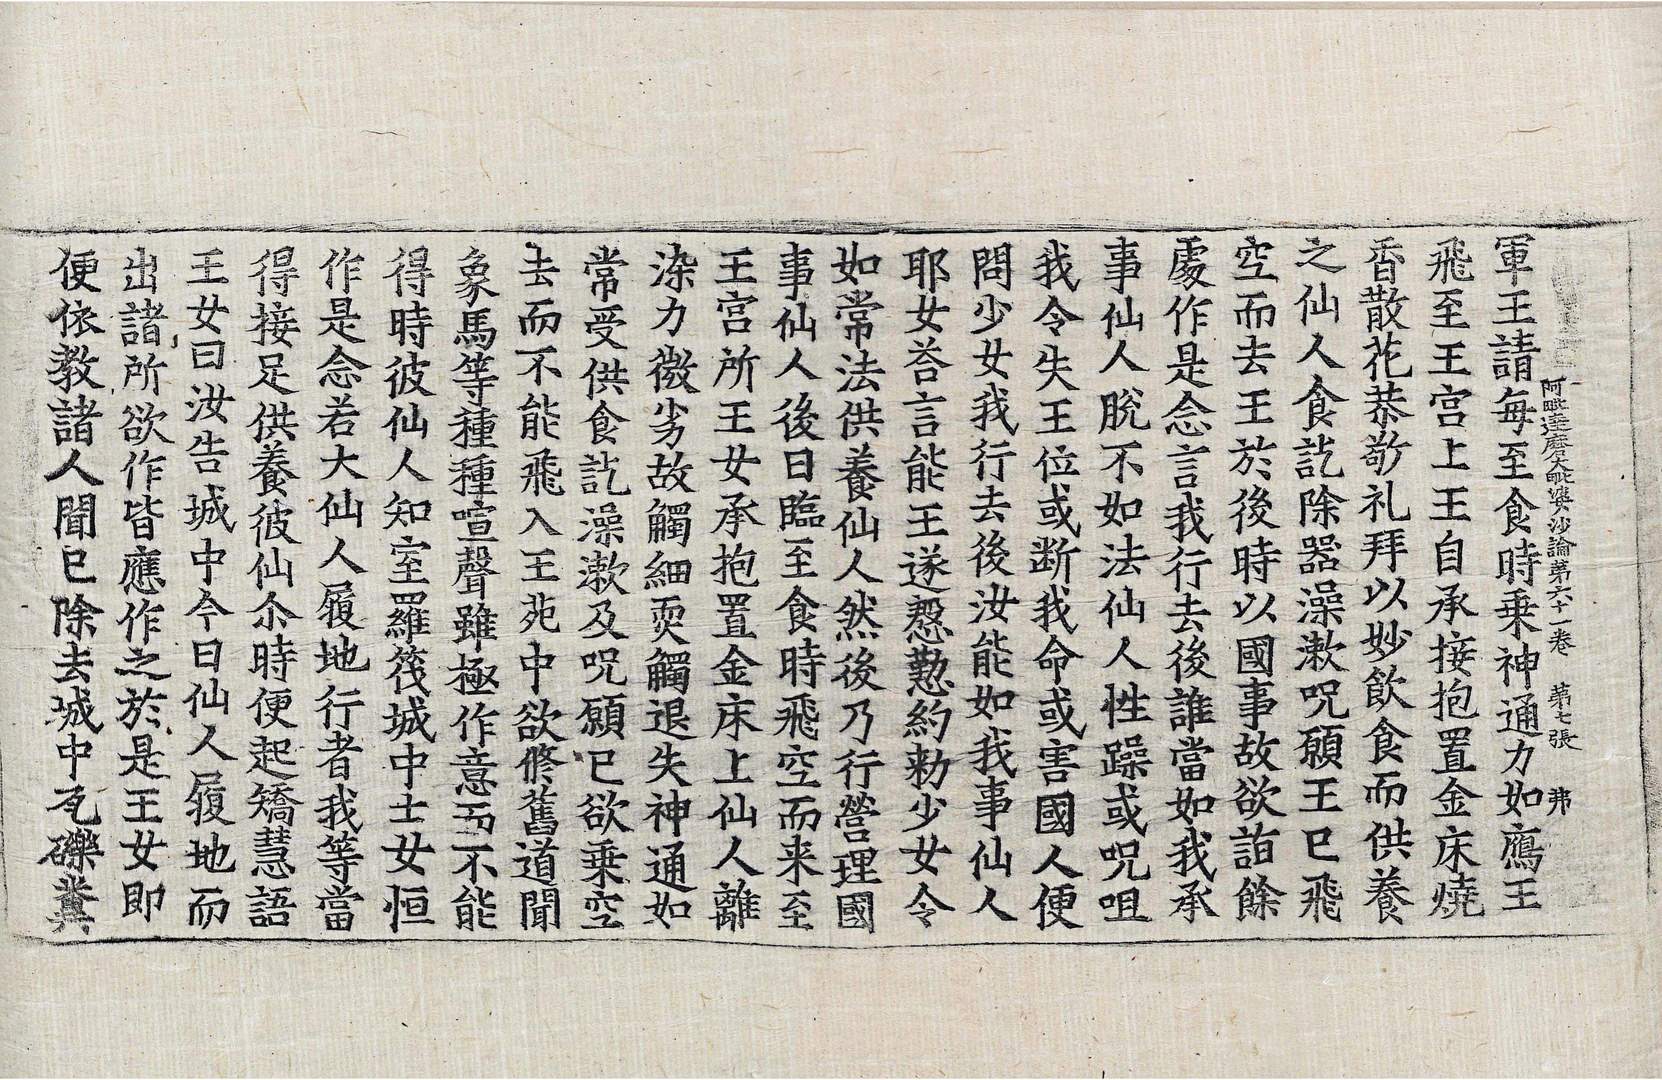 阿毗達磨大毗婆沙論第六十一卷 第七張 弗
軍王請每至食時乗神通力如鴈王
飛至王宮上王自承接抱置金床燒
香散花恭敬礼拜以妙飲食而供養
之仙人食訖除器澡漱呪願王已飛
空而去王於後時以國事故欲詣餘
處作是念言我行去後誰當如我承
事仙人脫不如法仙人性躁或呪咀
我令失王位或断我命或害國人便
問少女我行去後汝能如我事仙人
耶女荅言能王遂慇懃約勑少女令
如常法供養仙人然後乃行營理國
事仙人後日臨至食時飛空而来至
王宮所王女承抱置金床上仙人離
染力微劣故觸細耎觸退失神通如
常受供食訖澡漱及呪願已欲乗空
去而不能飛入王苑中欲脩舊道聞
象馬等種種喧聲雖極作意而不能
得時彼仙人知室羅筏城中士女恒
作是念若大仙人履地行者我等當
得接足供養彼仙尒時便起矯慧語
王女曰汝告城中今日仙人履地而
出諸所欲作皆應作之於是王女即
便依教諸人聞已除去城中瓦礫糞